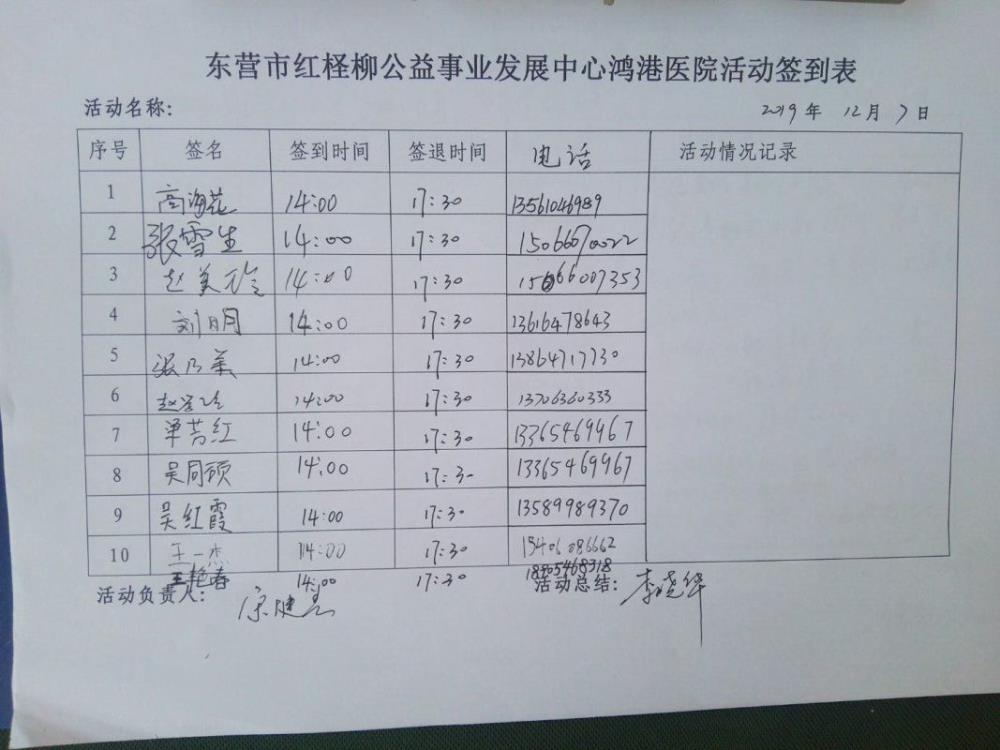 东营市红柽柳公益事业发展中心鸿港医院活动签到表
活动名称: 2019年 12月 7日
序号 签名 签到时间 签退时间 电话 活动情况记录
1 高海花 14:00 17:30 13561046989
2 张雪生 14:00 17:30 15066070022
3 赵美玲 14:00 17:30 15066007353
4 刘明 14:00 17:30 13616478643
5 张乃美 14:00 17:30 13864717730
6 14:00 17:30 13706360333
7 单芳红 14:00 17:30 13365469967
8 吴同硕 14:00 17:30 13365469967
9 吴红霞 14:00 17:30 13589989370
10 王一杰 14:00 17:30 15406086662
王艳春 14:00 17:30 18905468318
活动负责人: 活动总结: 李晓华